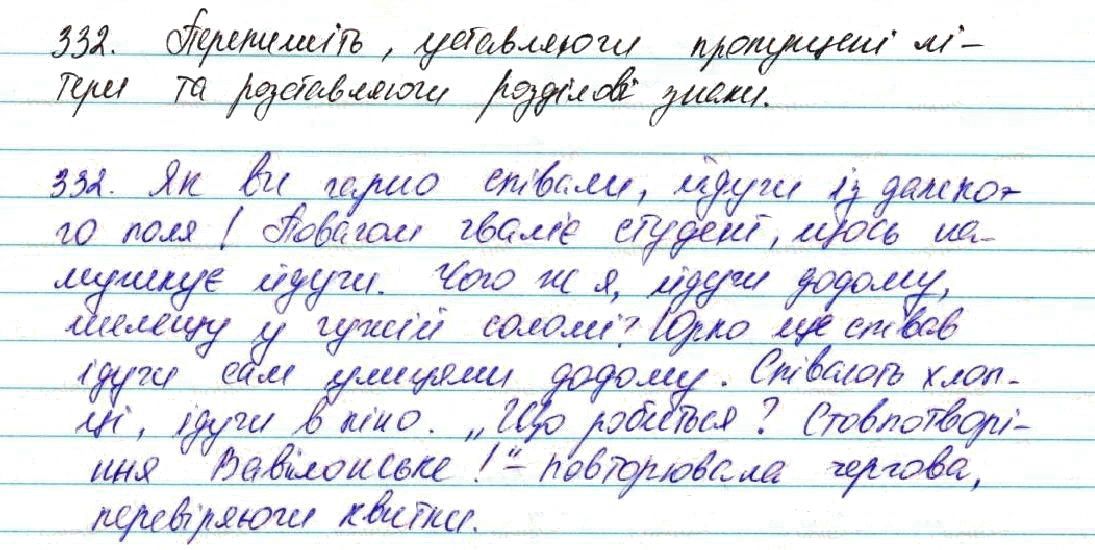 332. Перепишіть, уставляючи пропущені лі-
тери та розставляючи розділові знаки.
332. Як ви гарно співали, йдучи із далеко-
го поля! Повагом чвалає студент, щось на-
мугикує йдучи. Чого ж я, йдучи додому,
шелещу у чужій соломі? Юрко ще співав
ідучи сам улицями додому. Співають хлоп-
ці, ідучи в кіно. „Що робиться? Стовпотворі-
ння Вавілонське!“ – повторювала чергова,
перевіряючи квитки.